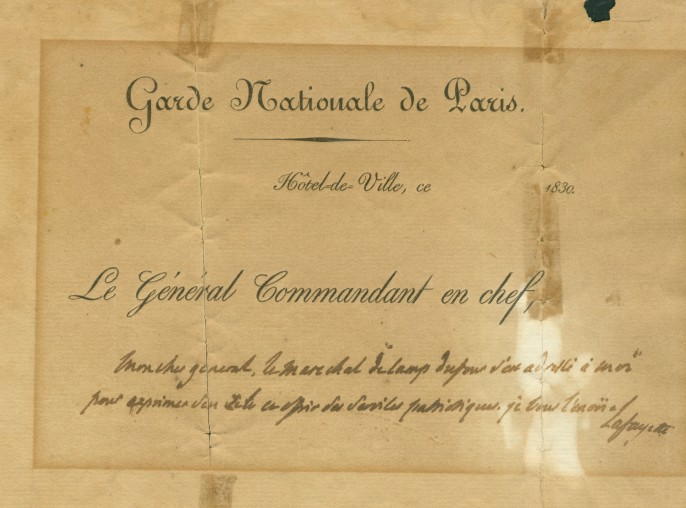 Garde Nationale de Paris.
Hôtel-de-Ville, ce 1830.
Le Général Commandant en chef,
mon cher general, le marechal de camp dufour s'est adressé à moi
pour exprimer son zele et offrir ses services patriotiques. je vous l'envoie
Lafayette